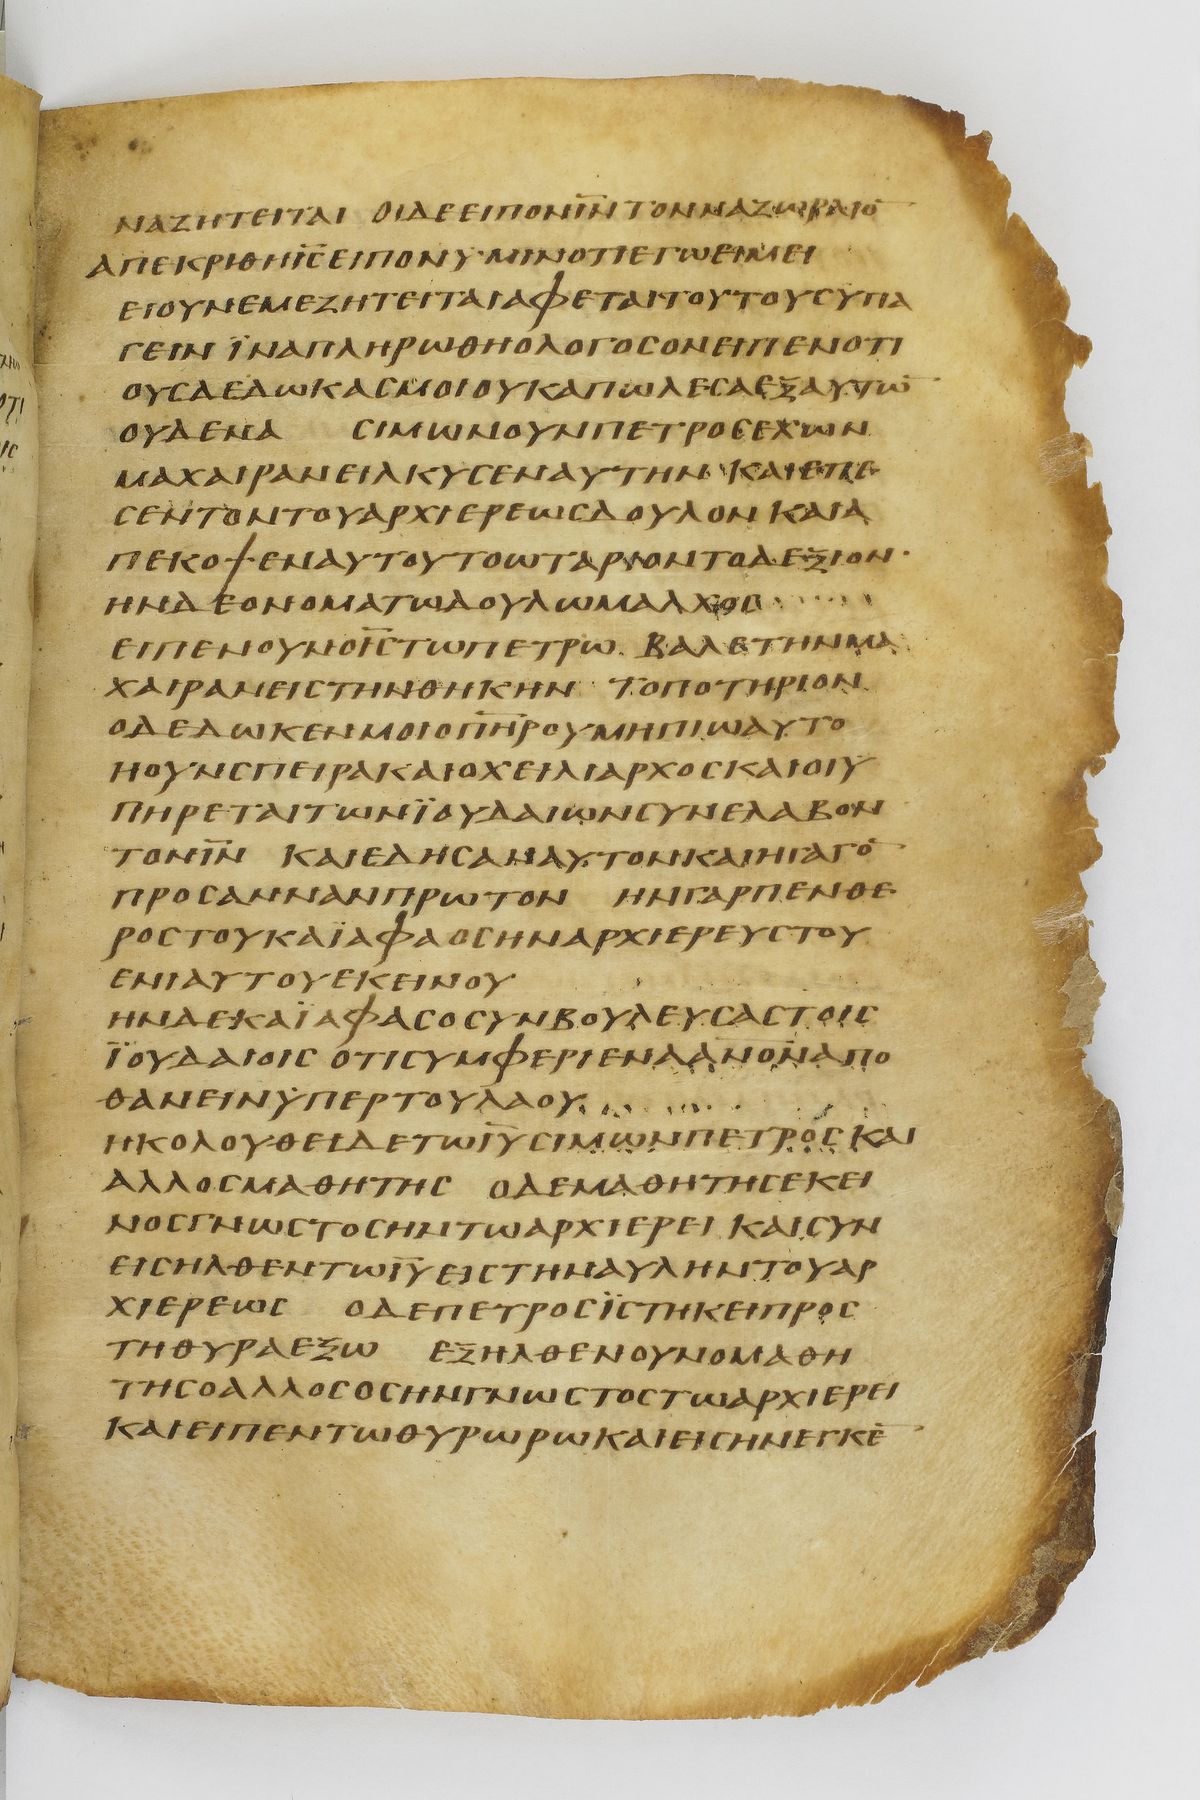 ΝΑΖΗΤΕΙΤΑΙ ΟΙΔΕΕΙΠΟΝΙ̅Ν̅ΤΟΝΝΑΖΩΡΑΙΟ̅
ΑΠΕΚΡΙΘΗΙ̅Σ̅ΕΙΠΟΝΥΜΙΝΟΤΙΕΓΩΕΙΜΕΙ
ΕΙΟΥΝΕΜΕΖΗΤΕΙΤΑΙΑΦΕΤΑΙΤΟΥΤΟΥΣΥΠΑ
ΓΕΙΝ ΪΝΑΠΛΗΡΩΘΗΟΛΟΓΟΣΟΝΕΙΠΕΝΟΤΙ
ΟΥΣΔΕΔΩΚΑΣΜΟΙΟΥΚΑΠΩΛΕΣΑΕΞΑΥΤΩ̅
ΟΥΔΕΝΑ ΣΙΜΩΝΟΥΝΠΕΤΡΟΣΕΧΩΝ
ΜΑΧΑΙΡΑΝΕΙΛΚΥΣΕΝΑΥΤΗΝ ΚΑΙΕΠΕ
ΣΕΝΤΟΝΤΟΥΑΡΧΙΕΡΕΩΣΔΟΥΛΟΝ ΚΑΙΑ
ΠΕΚΟΨΕΝΑΥΤΟΥΤΟΩΤΑΡΙΟΝΤΟΔΕΞΙΟΝ·
ΗΝΔΕΟΝΟΜΑΤΩΔΟΥΛΩΜΑΛΧΟΣ
ΕΙΠΕΝΟΥΝΟΙ̅Σ̅ΤΩΠΕΤΡΩ ΒΑΛΕΤΗΝΜΑ
ΧΑΙΡΑΝΕΙΣΤΗΝΘΗΚΗΝ ΤΟΠΟΤΗΡΙΟΝ
ΟΔΕΔΩΚΕΝΜΟΙΟΠ̅Η̅Ρ̅ΟΥΜΗΠΙΩΑΥΤΟ
ΗΟΥΝΣΠΕΙΡΑΚΑΙΟΧΕΙΛΙΑΡΧΟΣΚΑΙΟΙΥ
ΠΗΡΕΤΑΙΤΩΝΪΟΥΔΑΙΩΝΣΥΝΕΛΑΒΟΝ
ΤΟΝΙ̅Ν̅ ΚΑΙΕΔΗΣΑΝΑΥΤΟΝΚΑΙΗΓΑΓΟ̅
ΠΡΟΣΑΝΝΑΝΠΡΩΤΟΝ ΗΝΓΑΡΠΕΝΘΕ
ΡΟΣΤΟΥΚΑΪΑΦΑΟΣΗΝΑΡΧΙΕΡΕΥΣΤΟΥ
ΕΝΙΑΥΤΟΥΕΚΕΙΝΟΥ
ΗΝΔΕΚΑΪΑΦΑΣΟΣΥΝΒΟΥΛΕΥΣΑΣΤΟΙΣ
ΪΟΥΔΑΙΟΙΣ ΟΤΙΣΥΜΦΕΡΙΕΝΑΑ̅Ν̅Ο̅Ν̅ΑΠΟ
ΘΑΝΕΙΝΫΠΕΡΤΟΥΛΑΟΥ
ΗΚΟΛΟΥΘΕΙΔΕΤΩΙ̅Υ̅ΣΙΜΩΝΠΕΤΡΟΣΚΑΙ
ΑΛΛΟΣΜΑΘΗΤΗΣ ΟΔΕΜΑΘΗΤΗΣΕΚΕΙ
ΝΟΣΓΝΩΣΤΟΣΗΝΤΩΑΡΧΙΕΡΕΙ ΚΑΙΣΥΝ
ΕΙΣΗΛΘΕΝΤΩΙ̅Υ̅ΕΙΣΤΗΝΑΥΛΗΝΤΟΥΑΡ
ΧΙΕΡΕΩΣ ΟΔΕΠΕΤΡΟΣΪΣΤΗΚΕΙΠΡΟΣ
ΤΗΘΥΡΑΕΞΩ ΕΞΗΛΘΕΝΟΥΝΟΜΑΘΗ
ΤΗΣΟΑΛΛΟΣΟΣΗΝΓΝΩΣΤΟΣΤΩΑΡΧΙΕΡΕΙ
ΚΑΙΕΙΠΕΝΤΩΘΥΡΩΡΩΚΑΙΕΙΣΗΝΕΓΚΕ̅